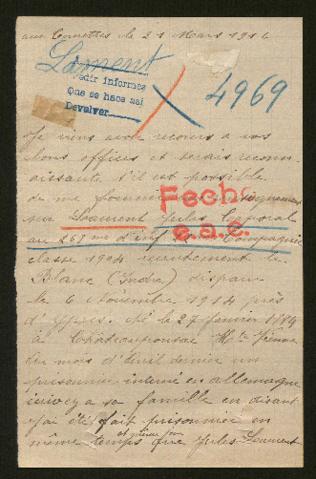 aux Courettes le 21 Mars 1916
Lament
Pedir informes
Que se hace asi
Devolver
4969
Je viens avoir recours a vos
bons offices et serais recon
aissante s'il est possible
de me fournir
Fecho
sur Laurent jules Caporal
au 268 me d'inf Compagnie
e.a.c.
classe 1904 recrutement le
Blanc (Indre) disparu
le 6 Novembre 1914 près
d'Ypres. né le 27 février 1884
à Châteauponsac Hte Vienne
Au mois d'Avril dernier un
prisonnier interné en allemagne
a sa famille en disant
j'ai été fait prisonnier en
même temps que jules Laurent